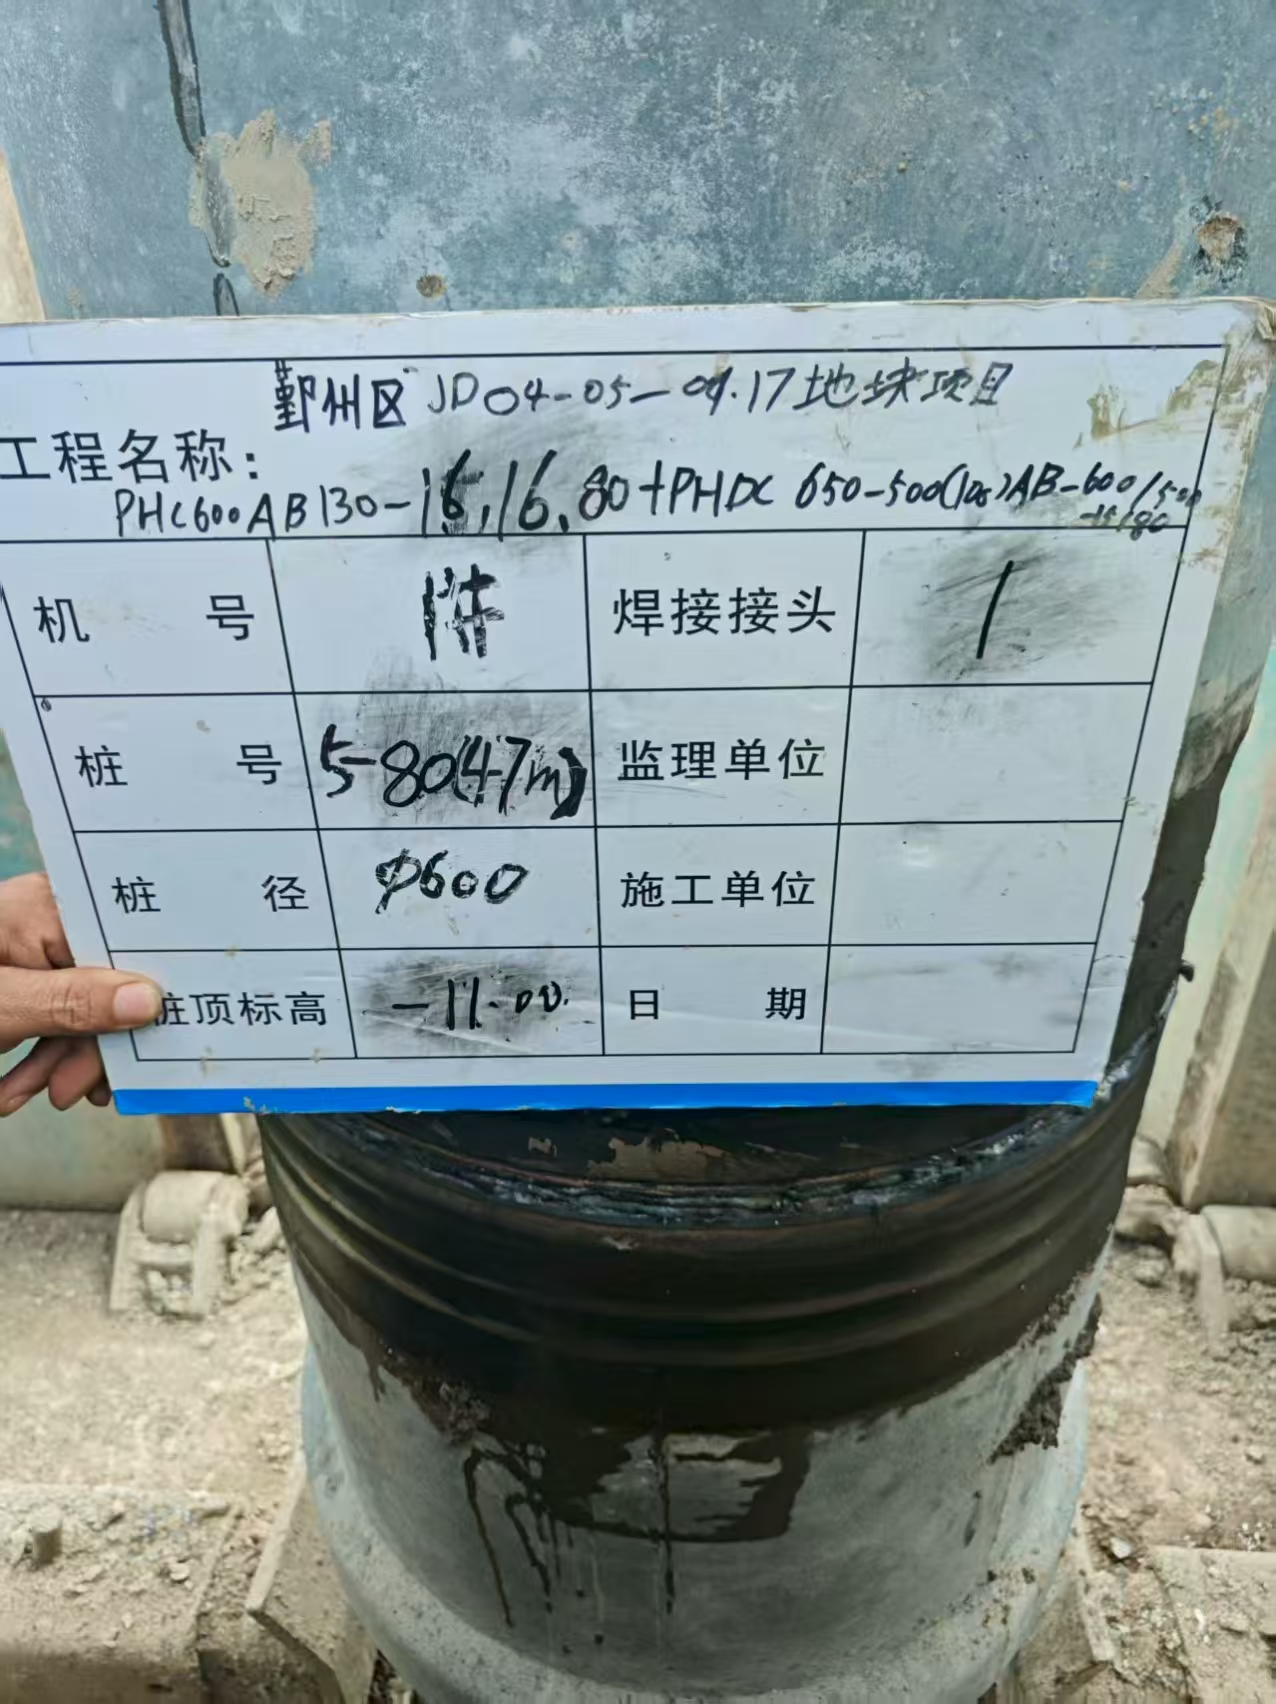 鄞州区JD04-05-09.17地块项目
工程名称:
PHC600AB130-16,16,80+PHDC 650-500(105)AB-600/500
-15/80
机 号 1# 焊接接头 1
桩 号 5-80(47m) 监理单位
桩 径 Φ600 施工单位
桩顶标高 -11.00. 日 期